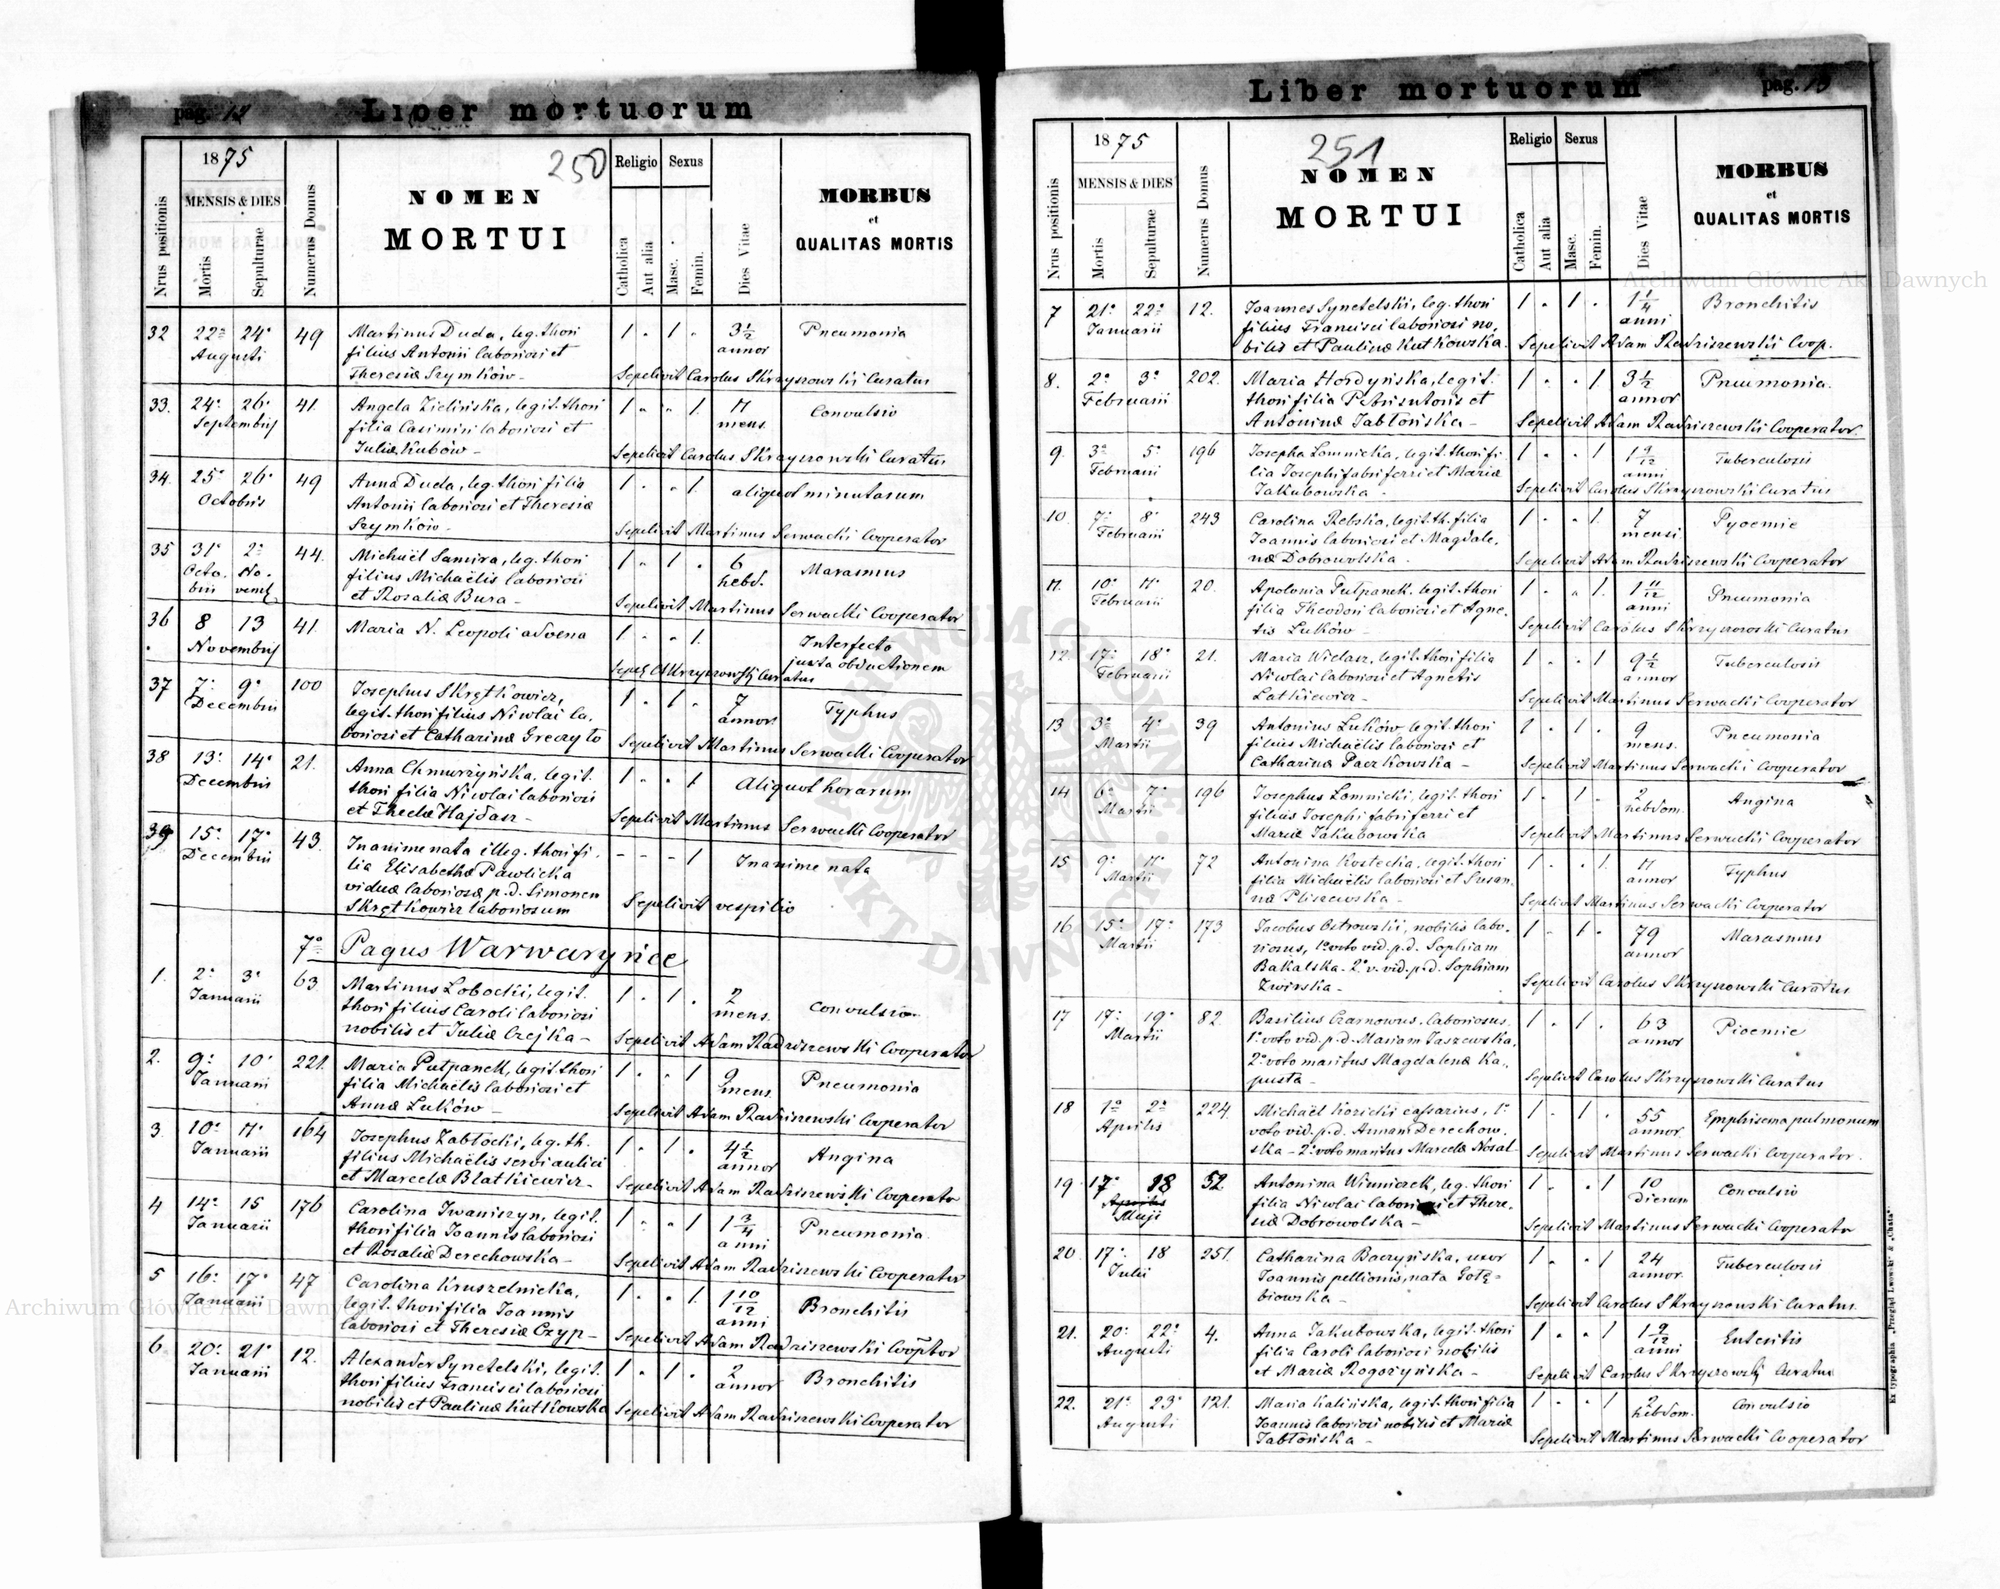 pag. 12
Liber mortuorum
250
Nrus positionis
1875
MENSIS & DIES
Mortis
Sepulturae
Numerus Domus
NOMEN
MORTUI
Religio
Sexus
Catholica
Aut alia
Masc.
Femin.
Dies Vitae
MORBUS
et
QUALITAS MORTIS
32 22a 24a 49 Martinus Duda, leg. thori 1 " 1 " 3 1/2 Pneumonia
Augusti filius Antonii laboriosi et annor
Theresiæ Szymków - Sepelivit Carolus Skrzyszowski Curatus
33. 24a 26a 41. Angela Zielińska, legit. thori 1 " " 1. 11 Convulsio
Septembris filia Casimiri laboriosi et mens.
Juliæ Kubów - Sepelivit Carolus Skrzyszowski Curatus
34. 25a 26a 49 Anna Duda, leg. thori filia 1 " " 1. aliquot minutarum
Octobris Antonii laboriosi et Theresiæ
Szymków - Sepelivit Martinus Serwacki Cooperator
35 31a 2a 44. Michaël Samira, leg. thori 1 " 1 " 6 Marasmus
Octo. No. filius Michaëlis laboriosi hebd.
bris vemb. et Rosaliæ Bura - Sepelivit Martinus Serwacki Cooperator
36 8 13 41. Maria N. Leopoli advena 1 " " 1. Interfecta
Novembris juxta obductionem
Sepel. C. Skrzyszowski Curatus
37 7a 9a 100 Josephus Skrętkowicz, 1 " 1 " 7 Typhus
Decembris legit. thori filius Nicolai la- annor.
boriosi et Catharinæ Greczyło Sepelivit Martinus Serwacki Cooperator
38 13a 14a 21. Anna Chmurzyńska, legit. 1 " " 1 Aliquot horarum
Decembris thori filia Nicolai laboriosi
et Theclæ Hajdasz - Sepelivit Martinus Serwacki Cooperator
39 15a 17a 43. Inanime nata illeg. thori fi- - - - 1 Inanime nata
Decembris lia Elisabethæ Pawlicka
viduæ laboriosæ p. d. Simonem Sepelivit vespilio
Skrętkowicz laboriosum
7o Pagus Warwaryńce
1. 2a 3a 63 Martinus Lobocki, legit. 1 " 1 " 2 Convulsio
Januarii thori filius Caroli laboriosi mens.
nobilis et Juliæ Czejka - Sepelivit Adam Radziszewski Cooperator
2. 9a 10a 221. Maria Putpanek, legit. thori 1 " " 1 9 Pneumonia
Januarii filia Michaëlis laboriosi et mens.
Annæ Luków - Sepelivit Adam Radziszewski Cooperator
3. 10a 11a 164 Josephus Zabłocki, leg. th. 1 " 1 " 4 1/2 Angina
Januarii filius Michaëlis servi aulici annor
et Marcelæ Blatkiewicz - Sepelivit Adam Radziszewski Cooperator
4 14a 15 176 Carolina Iwaniszyn, legit. 1 " " 1 1 3/4 Pneumonia.
Januarii thori filia Joannis laboriosi anni
et Rosaliæ Derechowska - Sepelivit Adam Radziszewski Cooperator
5 16a 17a 47 Carolina Kruszelnicka, 1 " " 1. 1 10/12 Bronchitis
Januarii legit. thori filia Joannis anni
laboriosi et Theresiæ Czyp - Sepelivit Adam Radziszewski Cooptor
6 20a 21a 12. Alexander Synetelski, legit. 1 " 1 " 2 Bronchitis
Januarii thori filius Francisci laboriosi annor
nobilis et Paulinæ Kutkowska Sepelivit Adam Radziszewski Cooperator
Liber mortuorum
pag. 13
251
Nrus positionis
1875
MENSIS & DIES
Mortis
Sepulturae
Numerus Domus
NOMEN
MORTUI
Religio
Sexus
Catholica
Aut alia
Masc.
Femin.
Dies Vitae
MORBUS
et
QUALITAS MORTIS
7 21a 22a 12. Joannes Synetelski, leg. thori 1 " 1 " 1 1/4 Bronchitis
Januarii filius Francisci laboriosi no- anni
bilis et Paulinæ Kutkowska. Sepelivit Adam Radziszewski Coop.
8. 2a 3a 202. Maria Hordyńska, legit. 1 " " 1. 3 1/2 Pneumonia.
Februarii thori filia Petri sutoris et annor
Antoninæ Jabłońska - Sepelivit Adam Radziszewski Cooperator.
9. 3a 5a 196 Josepha Lomnicka, legit. thori fi- 1 " " 1 1 9/12 Tuberculosis
Februarii lia Josephi fabri ferri et Mariæ anni
Jakubowska - Sepelivit Carolus Skrzyszowski Curatus
10. 7a 8a 243 Carolina Rebska, legit. th. filia 1 " " 1. 7 Pyoemie
Februarii Joannis laboriosi et Magdale- mensi.
næ Dobrowolska - Sepelivit Adam Radziszewski Cooperator
11. 10a 11a 20. Apolonia Putpanek, legit. thori 1 " " 1. 1 11/12 Pneumonia
Februarii filia Theodori laboriosi et Agne- anni
tis Luków - Sepelivit Carolus Skrzyszowski Curatus
12. 17a 18a 21. Maria Wielasz, legit. thori filia 1 " " 1 9 1/2 Tuberculosis
Februarii Nicolai laboriosi et Agnetis annor
Latkiewicz - Sepelivit Martinus Serwacki Cooperator
13 3a 4a 39 Antonius Luków, legit. thori 1 " 1 " 9 Pneumonia
Martii filius Michaëlis laboriosi et mens.
Catharinæ Paczkowska - Sepelivit Martinus Serwacki Cooperator
14 6a 7a 196 Josephus Lomnicki, legit. thori 1 " 1 " 2 Angina
Martii filius Josephi fabri ferri et hebdom.
Mariæ Jakubowska Sepelivit Martinus Serwacki Cooperator
15 9a 11a 72 Antonina Kostecka, legit. thori 1 " " 1. 11 Typhus
Martii filia Michaëlis laboriosi et Susan- annor
næ Pliszewska - Sepelivit Martinus Serwacki Cooperator
16 15a 17a 173 Jacobus Ostrowski, nobilis labo- 1 " 1 " 79 Marasmus
Martii riosus, 1o voto vid. p. d. Sophiam annor
Bakalska - 2o v. vid. p. d. Sophiam
Zwirska - Sepelivit Carolus Skrzyszowski Curatus
17 17a 19a 82. Basilius Czarnowus, laboriosus, 1 " 1 " 63 Pioemie
Martii 1o voto vid. p. d. Mariam Jaszewska, annor
2o voto maritus Magdalenæ Ka-
pusta - Sepelivit Carolus Skrzyszowski Curatus
18 1a 2a 224. Michaël Kozicki casarius, 1o 1 " 1 " 55 Emphisema pulmonum
Aprilis voto vid. p. d. Annam Derechow- annor
ska - 2o voto maritus Marcelæ Nosal - Sepelivit Martinus Serwacki Cooperator.
19. 17a 18 52. Antonina Winniczek, leg. thori 1 " " 1 10 Convulsio
Aprilis filia Nicolai laboriosi et There- Dierum
Maji siæ Dobrowolska - Sepelivit Martinus Serwacki Cooperator
20. 17a 18 251. Catharina Baczyńska, uxor 1 " " 1 24 Tuberculosis
Julii Joannis pellionis, nata Gołę- annor.
biowska - Sepelivit Carolus Skrzyszowski Curatus
21. 20a 22a 4. Anna Jakubowska, legit. thori 1 " " 1 1 9/12 Enteritis
Augusti filia Caroli laboriosi nobilis anni
et Mariæ Rogożyńska - Sepelivit Carolus Skrzyszowski Curatus
22. 21a 23a 121. Maria Kalińska, legit. thori filia 1 " " 1 2 Convulsio
Augusti Joannis laboriosi nobilis et Mariæ hebdom.
Jabłońska - Sepelivit Martinus Serwacki Cooperator
Ex typographia „Przegląd Lwowski" & „Chata".
Archiwum Główne Akt Dawnych
Archiwum Główne Akt Dawnych
ARCHIWUM GŁÓWNE AKT DAWNYCH